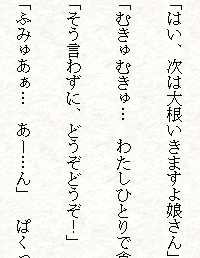 「はい、次は大根いきますよ娘さん」
「むきゅむきゅ…　わたしひとりで食
「そう言わずに、どうぞどうぞ！」
「ふみゅあぁ…　あー…ん」　ぱくっ